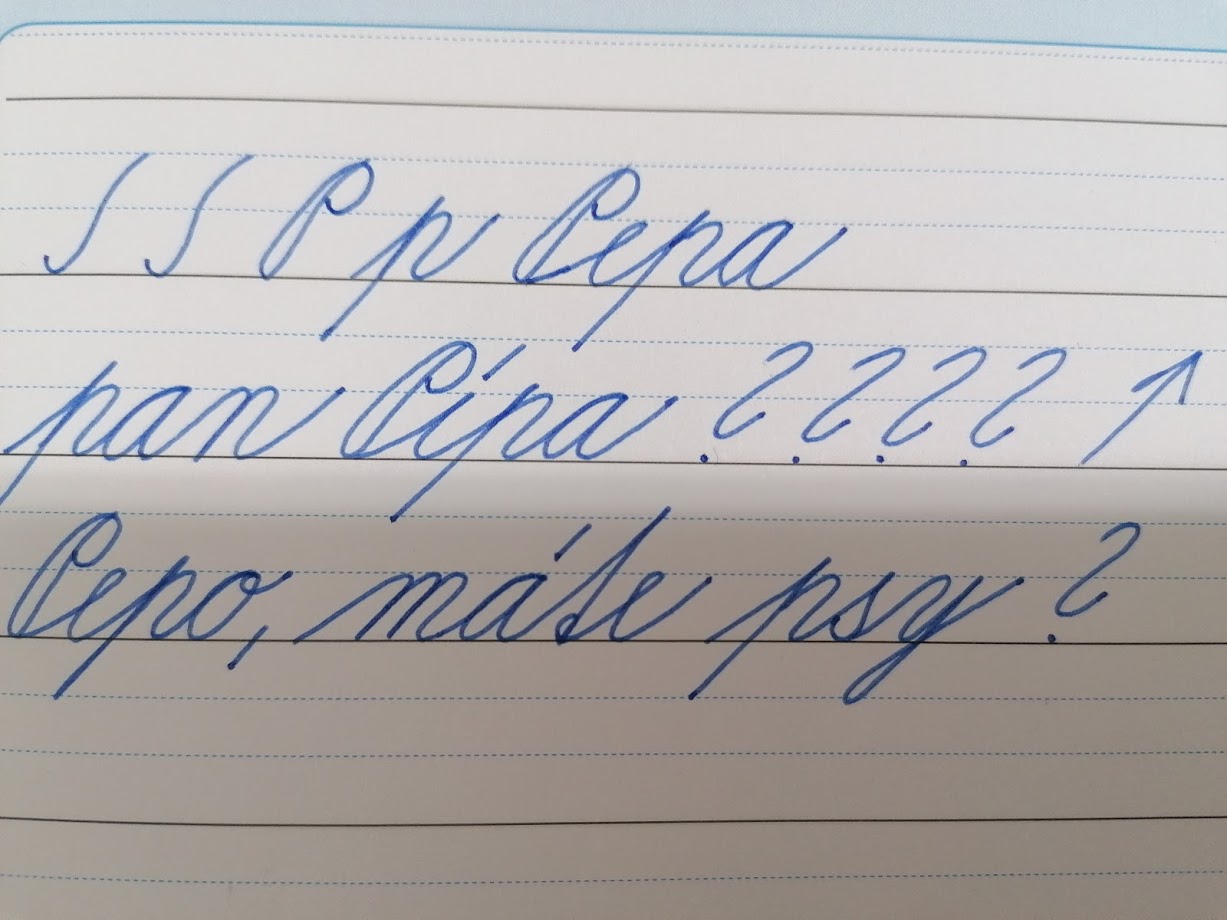 P p Pepa
pan Pípa ? ? ? ? ↑
Pepo, máte psy ?